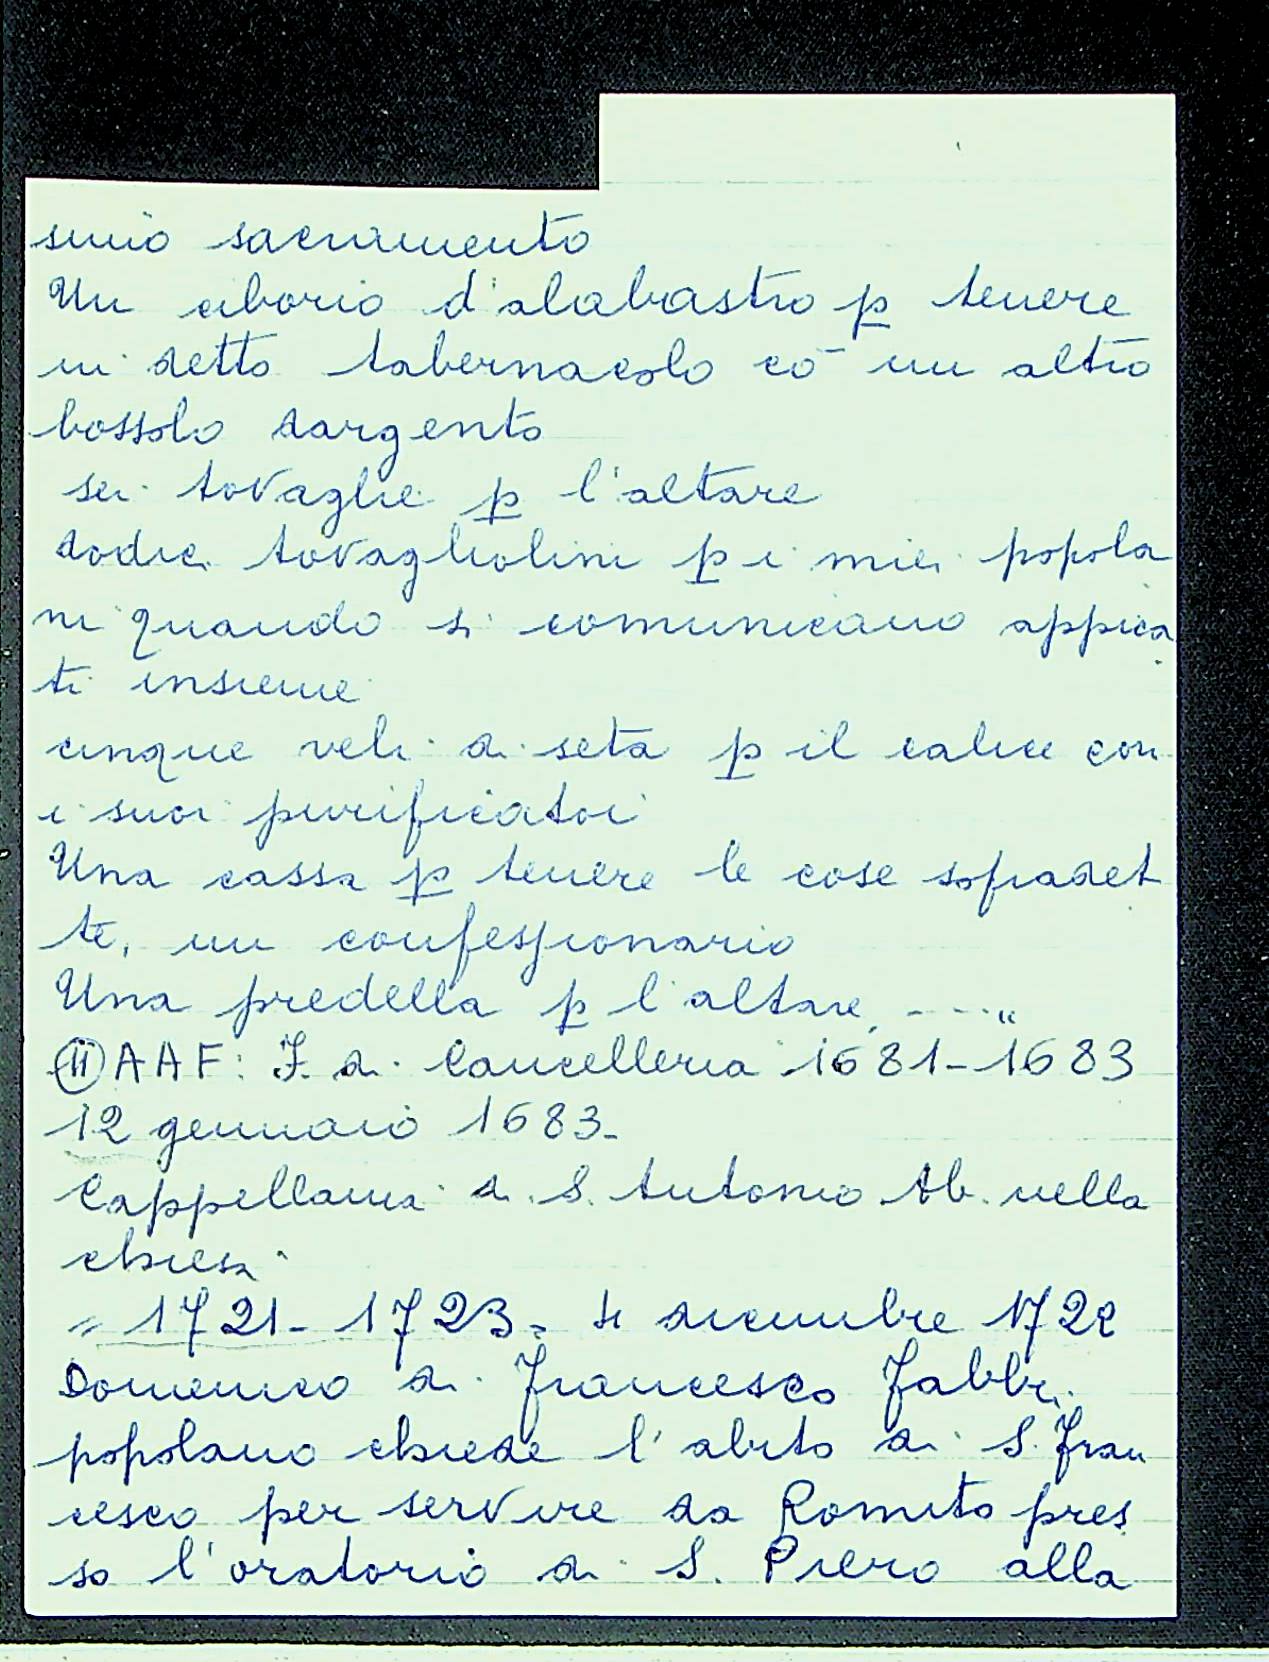 simo sacramento
Un ciborio d'alabastro p tenere
in detto tabernacolo cō un altro
bossolo dargento
sei tovaglie p l'altare
dodici tovagliolini p i miei popola
ni quando si comunicano appica
ti insieme
cinque veli di seta p il calice con
i suoi purificatoi
Una cassa p tenere le cose sopradet
te, un confessionario
Una predella p l'altare, ----"
(11) AAF: F. di Cancelleria 1681-1683
12 gennaio 1683-
Cappellania di S. Antonio Ab. nella
chiesa
" 1721-1723- 4 dicembre 1722
Domenico di Francesco Fabbri
popolano chiede l'abito di S. Fran
cesco per servire da Romito pres
so l'oratorio di S. Piero alla